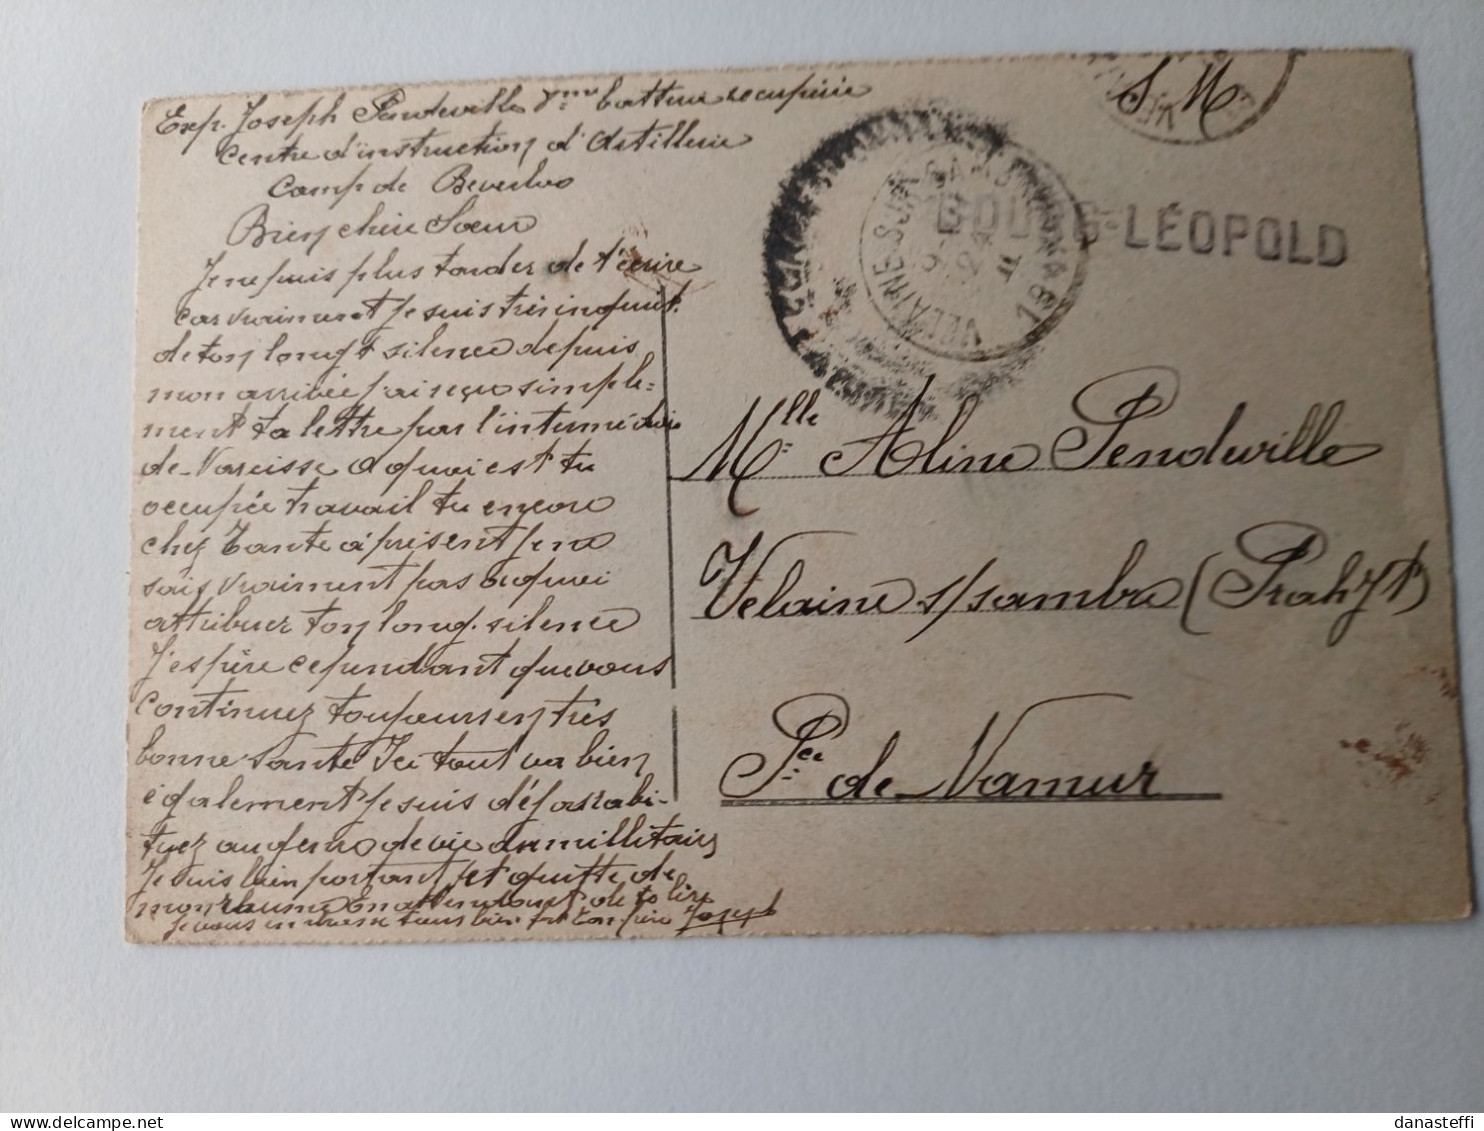 Exp. Joseph Pendeville batterie recupérée
Centre d'instruction d'Artillerie
Camp de Beverloo
Bien chère Soeur
Je ne puis plus tarder de t'écrire
car vraiment je suis très inquiet
de ton long silence depuis
mon arrivée j'ai reçu simple=
ment ta lettre par l'intermédiaire
de Narcisse a quoi est tu
occupée travail tu encore
chez Tante à présent je ne
sais vraiment pas a quoi
attribuer ton long silence
J'espère cependant que vous
continuez toujours en très
bonne Santé Ici tout va bien
également je suis déjà rabi-
tuez au genre de vie du millitaire
Je suis bien portant et quitte de
mon rhume En attendant de te lire
Je vous embrasse tous bien fort ton frère Joseph
S. M
VELAINE-SUR-SAMBRE
BOURG-LÉOPOLD
Mlle Aline Pendeville
Velaine s/sambre
Pce de Namur
danasteffi